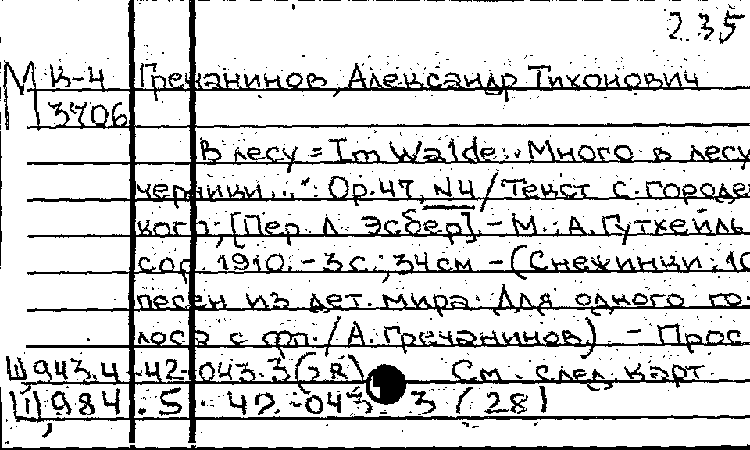 235
М К-4 Гречанинов, Александр Тихонович
3706
В лесу = Im Walde: "Много в лесу
черники...": Ор.47, N4 / Текст С. Городец
кого; [Пер. Л. Эсбер]. - М.: А. Гутхейль
cop. 1910. - 3 с.; 34 см - (Снежинки: 10
песен из дет. мира: Для одного го-
лоса с фп. / А. Гречанинов). - Прос
Ш943.4-42-043.3(28) См. след. карт
Щ984.5-42-043.3(28)